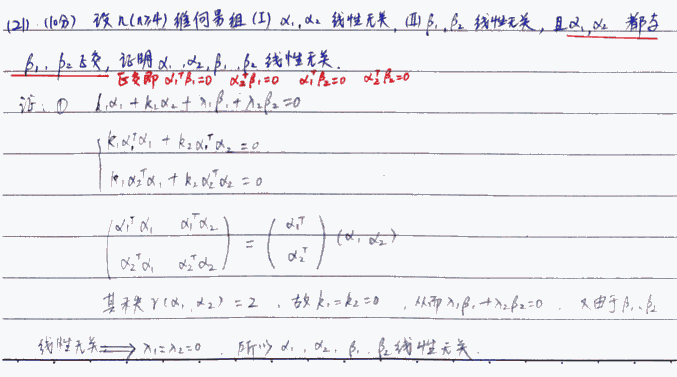 (21) (10分) 设 n(n≥4) 维向量组 (I) α₁, α₂ 线性无关, (II) β₁, β₂ 线性无关, 且 α₁, α₂ 都与
β₁, β₂ 正交, 证明 α₁, α₂, β₁, β₂ 线性无关.
正交即 α₁ᵀβ₁=0 α₂ᵀβ₁=0 α₁ᵀβ₂=0 α₂ᵀβ₂=0
证: ① k₁α₁ + k₂α₂ + λ₁β₁ + λ₂β₂ = 0
k₁α₁ᵀα₁ + k₂α₁ᵀα₂ = 0
k₁α₂ᵀα₁ + k₂α₂ᵀα₂ = 0
( α₁ᵀα₁ α₁ᵀα₂ ) = ( α₁ᵀ ) (α₁ α₂)
( α₂ᵀα₁ α₂ᵀα₂ ) ( α₂ᵀ )
其秩 r(α₁, α₂) = 2 , 故 k₁=k₂=0 , 从而 λ₁β₁+λ₂β₂=0 . 又由于 β₁、β₂
线性无关 ⟹ λ₁=λ₂=0 . 所以 α₁, α₂, β₁, β₂ 线性无关.